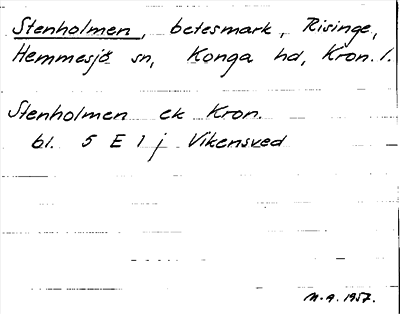 Stenholmen, betesmark, Risinge,
Hemmesjö sn, Konga hd, Kron. l.
Stenholmen ek Kron.
bl. 5 E 1 j Vikensved
M.A. 1957.